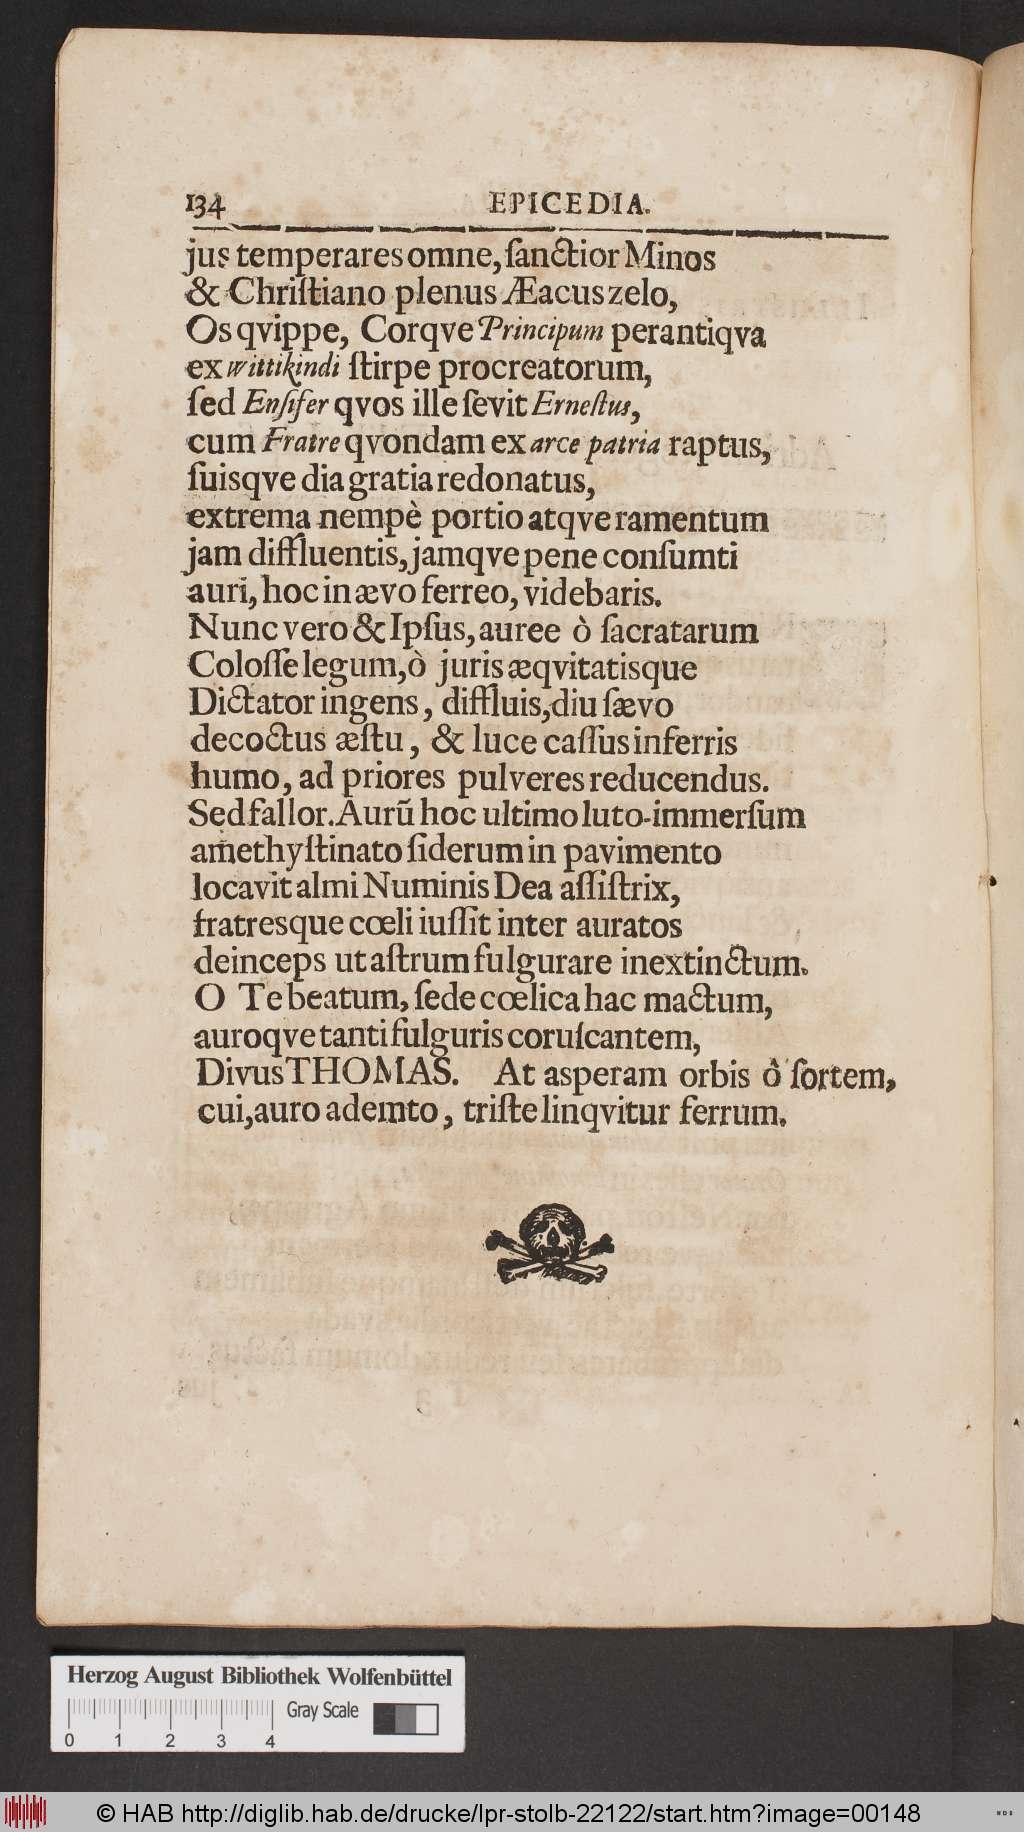 134 EPICEDIA.
jus temperares omne, ſanctior Minos
& Chriſtiano plenus Æacus zelo,
Os qvippe, Corqve Principum perantiqva
ex wittikindi ſtirpe procreatorum,
ſed Enſifer qvos ille ſevit Erneſtus,
cum Fratre qvondam ex arce patria raptus,
ſuisqve dia gratia redonatus,
extrema nempè portio atqve ramentum
jam diffluentis, jamqve pene conſumti
auri, hoc in ævo ferreo, videbaris.
Nunc vero & Ipſus, auree ò ſacratarum
Coloſſe legum, ò juris æqvitatisque
Dictator ingens, diffluis, diu ſævo
decoctus æſtu, & luce caſſus inferris
humo, ad priores pulveres reducendus.
Sed fallor. Aurũ hoc ultimo luto immerſum
amethyſtinato ſiderum in pavimento
locavit almi Numinis Dea aſſiſtrix,
fratresque cœli iuſſit inter auratos
deinceps ut aſtrum fulgurare inextinctum.
O Te beatum, ſede cœlica hac mactum,
auroqve tanti fulguris coruſcantem,
Divus THOMAS. At asperam orbis ô ſortem,
cui, auro ademto, triſte linqvitur ferrum.
Herzog August Bibliothek Wolfenbüttel
Gray Scale
0 1 2 3 4
© HAB http://diglib.hab.de/drucke/lpr-stolb-22122/start.htm?image=00148